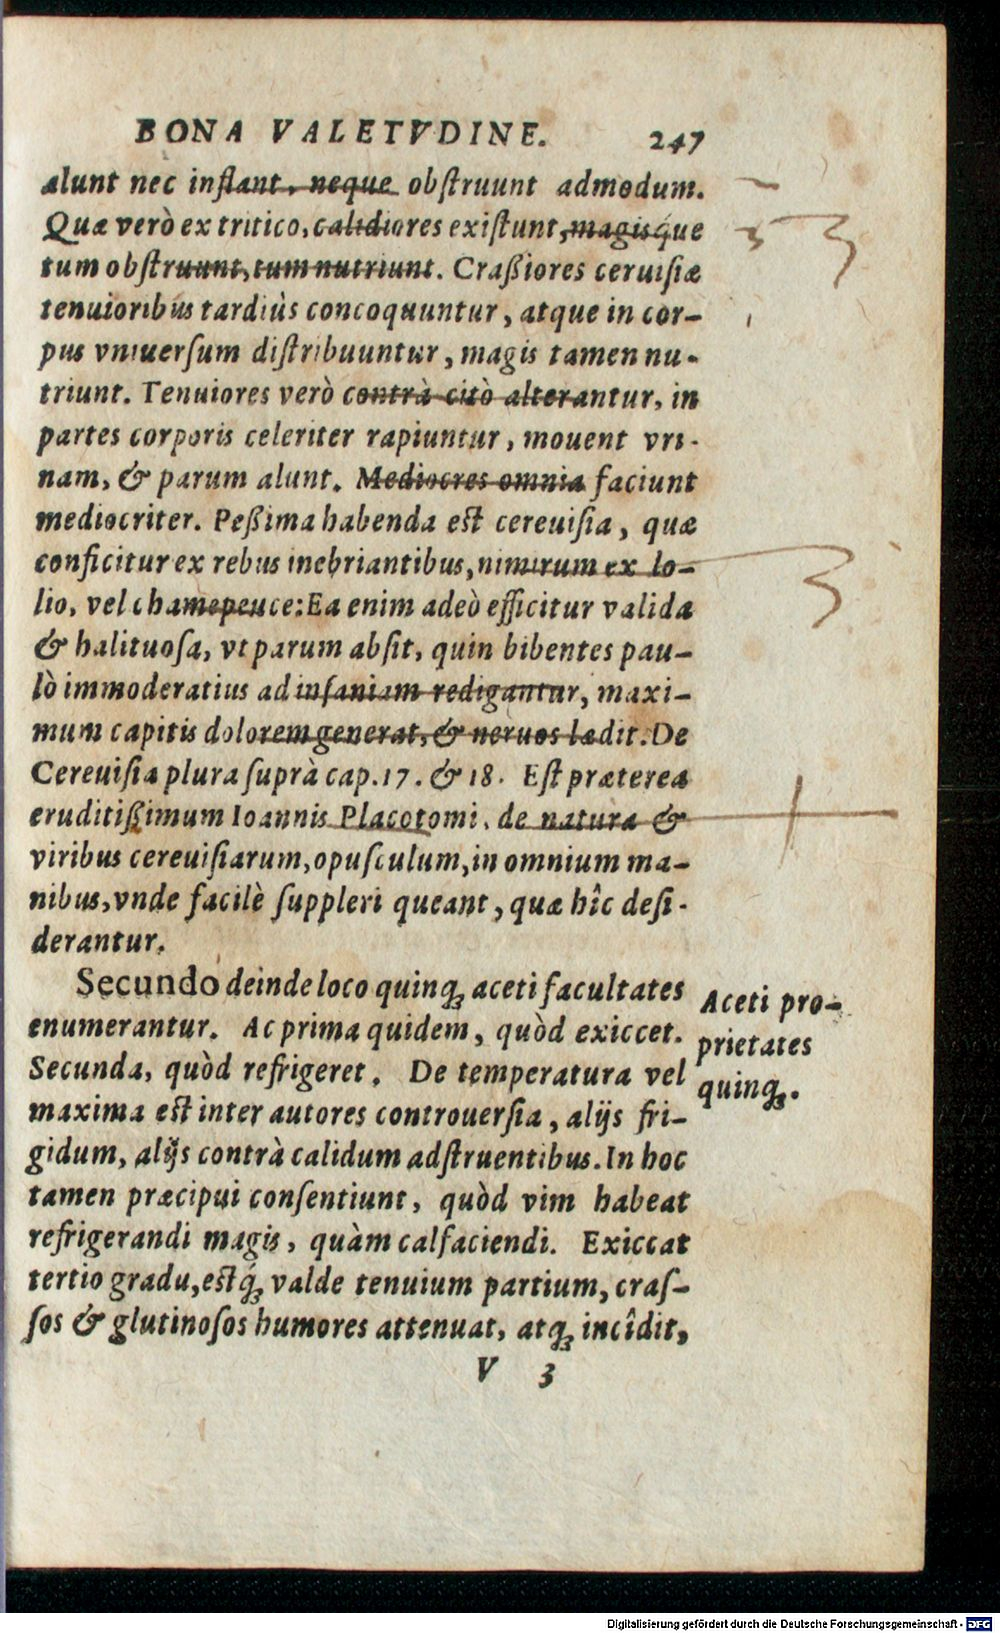 BONA VALETVDINE. 247
alunt nec inflant, neque obſtruunt admodum.
Quæ verò ex tritico, calidiores exiſtunt, magisq́ue
tum obſtruunt, tum nutriunt. Craßiores ceruiſiæ
tenuioribus tardiùs concoquuntur, atque in cor-
pus vniuerſum diſtribuuntur, magis tamen nu-
triunt. Tenuiores verò contrà citò alterantur, in
partes corporis celeriter rapiuntur, mouent vri-
nam, & parum alunt. Mediocres omnia faciunt
mediocriter. Peßima habenda eſt cereuiſia, quæ
conficitur ex rebus inebriantibus, nimirum ex lo-
lio, vel chamepeuce: Ea enim adeò efficitur valida
& halituoſa, vt parum abſit, quin bibentes pau-
lò immoderatius ad inſaniam redigantur, maxi-
mum capitis dolorem generat, & neruos lædit. De
Cereuiſia plura ſuprà cap. 17. & 18. Eſt præterea
eruditißimum Ioannis Placotomi, de natura &
viribus cereuiſiarum, opuſculum, in omnium ma-
nibus, vnde facilè ſuppleri queant, quæ hîc deſi-
derantur.
Secundo deinde loco quinq; aceti facultates
enumerantur. Ac prima quidem, quòd exiccet.
Secunda, quòd refrigeret. De temperatura vel
maxima eſt inter autores controuerſia, alijs fri-
gidum, alijs contrà calidum adſtruentibus. In hoc
tamen præcipui conſentiunt, quòd vim habeat
refrigerandi magis, quàm calfaciendi. Exiccat
tertio gradu, eſtq́; valde tenuium partium, craſ-
ſos & glutinoſos humores attenuat, atq; incîdit,
V 3
Aceti pro-
prietates
quinq;.
3
3
3
Digitalisierung gefördert durch die Deutsche Forschungsgemeinschaft - DFG